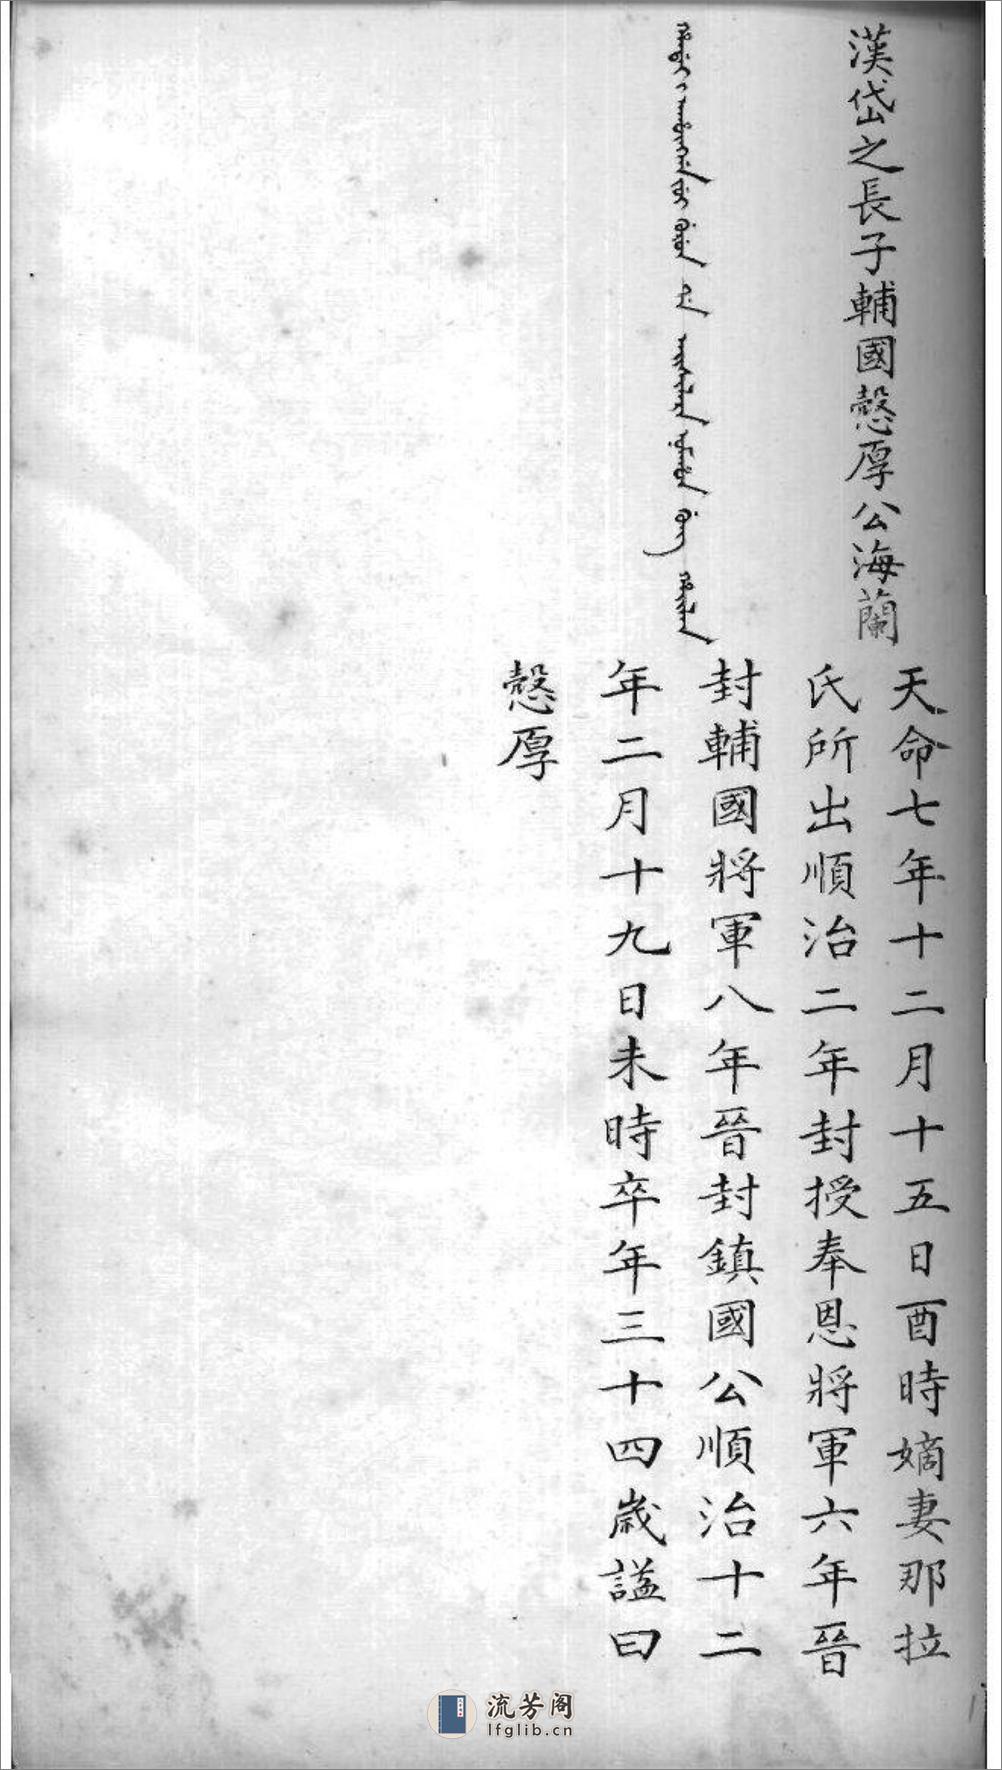 漢岱之長子輔國慤厚公海蘭
天命七年十二月十五日酉時嫡妻那拉
氏所出順治二年封授奉恩將軍六年晉
封輔國將軍八年晉封鎮國公順治十二
年二月十九日未時卒年三十四歲謚曰
慤厚
流芳阁
lfglib.cn